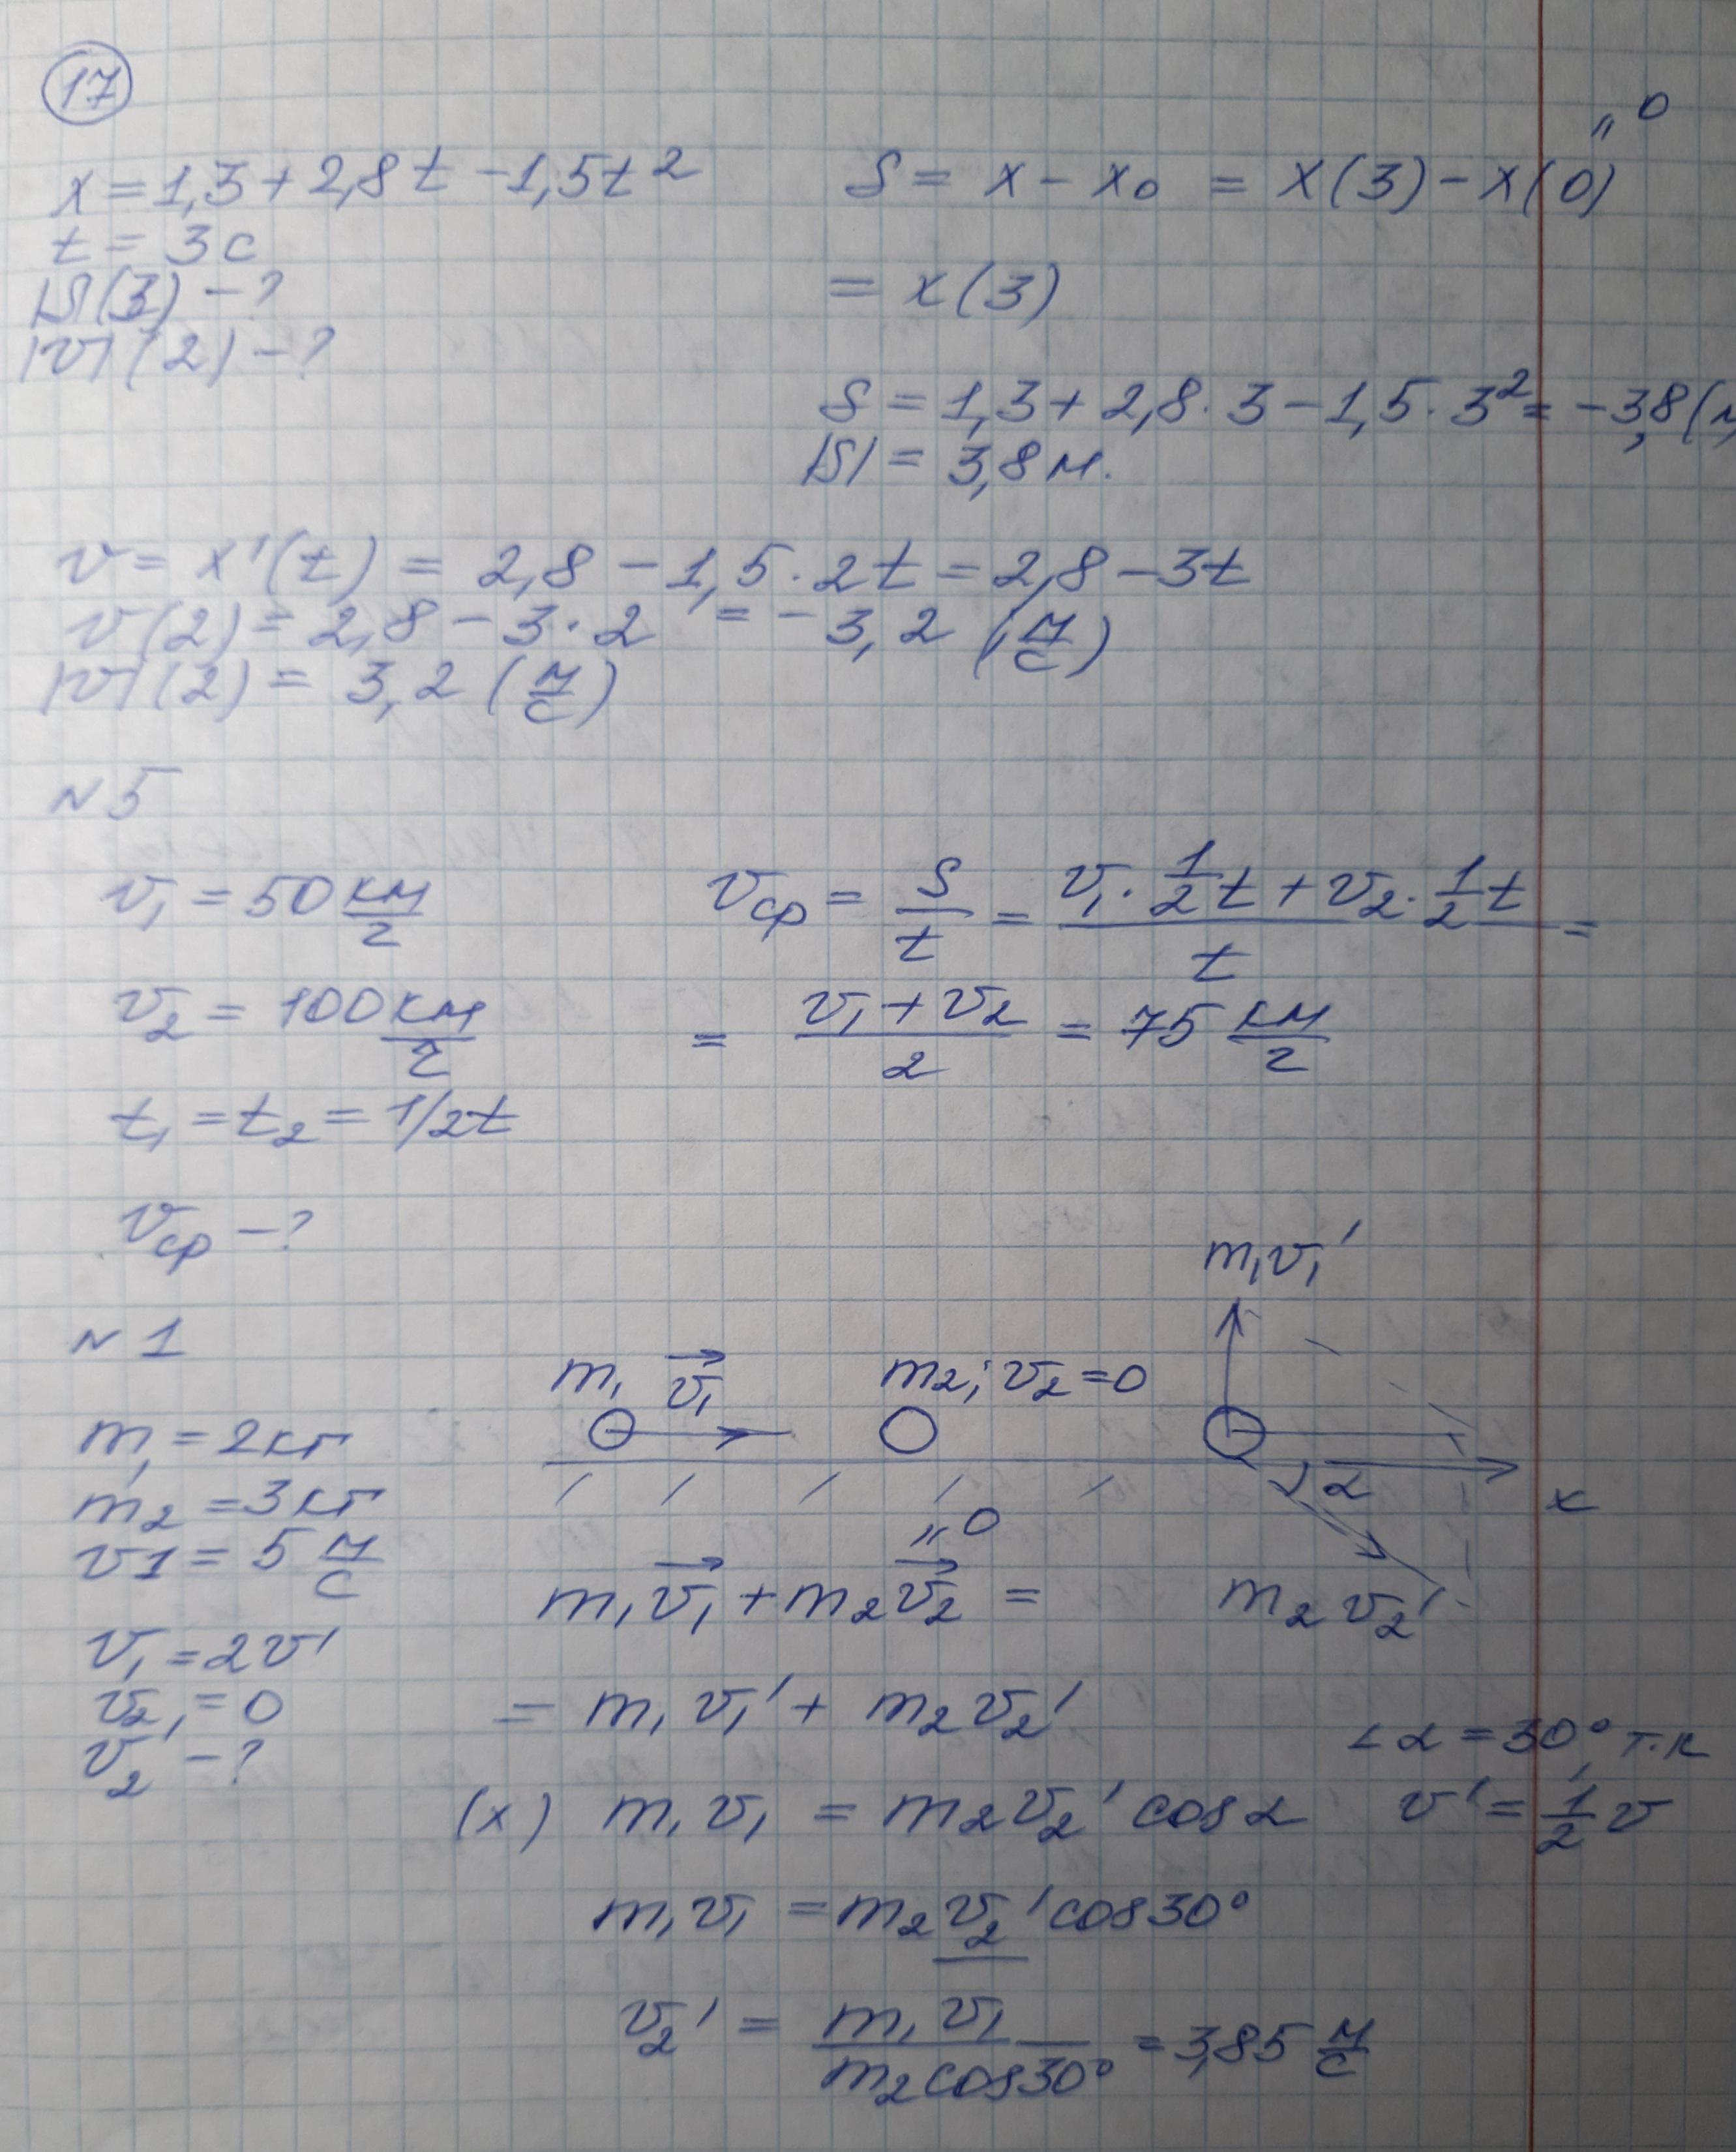 17
x = 1,3 + 2,8t - 1,5t²
t = 3c
|S|(3) - ?
|v|(2) - ?
S = x - x₀ = x(3) - x(0) " 0
= x(3)
S = 1,3 + 2,8 · 3 - 1,5 · 3² = -3,8 (м
|S| = 3,8 м.
v = x'(t) = 2,8 - 1,5 · 2t = 2,8 - 3t
v(2) = 2,8 - 3 · 2 = -3,2 (м/с)
|v|(2) = 3,2 (м/с)
N 5
v₁ = 50 км/г
v₂ = 100 км/г
t₁ = t₂ = 1/2t
vср - ?
vср = S/t = (v₁ · 1/2 t + v₂ · 1/2 t)/t =
= (v₁ + v₂)/2 = 75 км/г
N 1
m₁ = 2кг
m₂ = 3кг
v1 = 5 м/с
v₁ = 2v'
v₂ = 0
v₂' - ?
m₁ v₁→
m₂; v₂ = 0
m₁v₁'
α
x
m₂v₂'
m₁v₁→ + m₂v₂→ " 0 =
= m₁v₁' + m₂v₂'
∠α = 30° т.к
v' = 1/2 v
(x) m₁v₁ = m₂v₂' cosα
m₁v₁ = m₂v₂' cos30°
v₂' = m₁v₁/m₂cos30° = 3,85 м/с